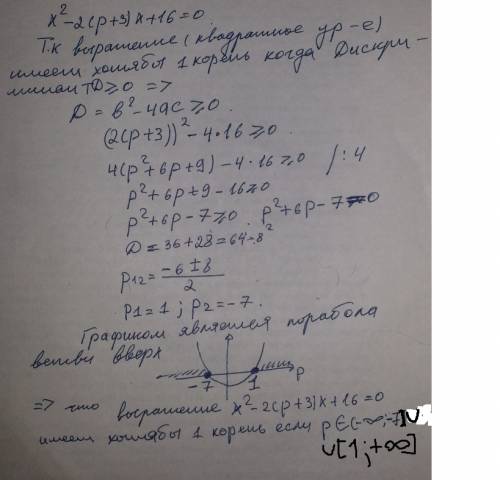 x² - 2(p+3)x + 16 = 0.
Т.к выражение (квадратное ур-е)
имеет хотябы 1 корень когда Дискри-
минант D ≥ 0 =>
D = в² - 4ac ≥ 0.
(2(p+3))² - 4·16 ≥ 0
4(p² + 6p + 9) - 4·16 ≥ 0 /:4
p² + 6p + 9 - 16 ≥ 0
p² + 6p - 7 ≥ 0. p² + 6p - 7 = 0
D = 36 + 28 = 64 = 8²
p12 = (-6 ± 8)/2
p1 = 1; p2 = -7.
Графиком является парабола
ветви вверх
-7 1 p
=> что выражение x² - 2(p+3)x + 16 = 0
имеет хотябы 1 корень если p ∈ (-∞; -7] ∪
∪ [1; +∞]